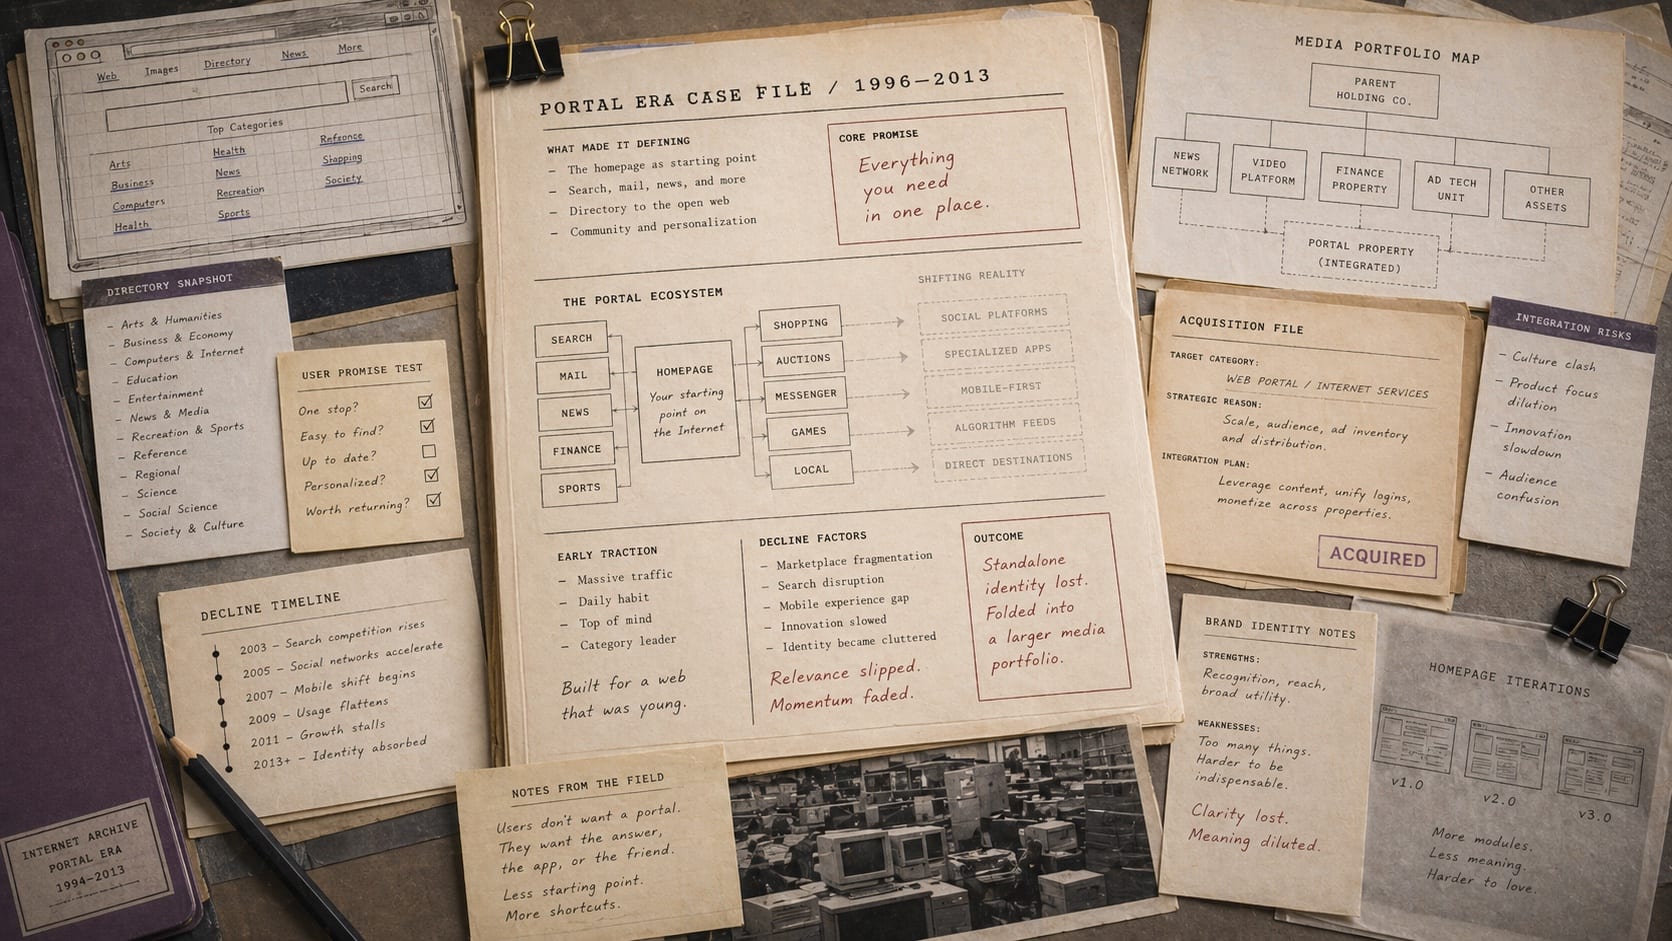 Web Images Directory News More
Search
Top Categories
Arts
Business
Computers
Health
Health
News
Recreation
Sports
Refzonce
Shapping
Society
DIRECTORY SNAPSHOT
– Arts & Humanities
– Business & Economy
– Computers & Internet
– Education
– Entertainment
– News & Media
– Recreation & Sports
– Reference
– Regional
– Science
– Social Science
– Society & Culture
USER PROMISE TEST
One stop?
Easy to find?
Up to date?
Personalized?
Worth returning?
DECLINE TIMELINE
2003 – Search competition rises
2005 – Social networks accelerate
2007 – Mobile shift begins
2009 – Usage flattens
2011 – Growth stalls
2013+ – Identity absorbed
INTERNET ARCHIVE
PORTAL ERA
1994–2013
PORTAL ERA CASE FILE / 1996–2013
WHAT MADE IT DEFINING
– The homepage as starting point
– Search, mail, news, and more
– Directory to the open web
– Community and personalization
CORE PROMISE
Everything
you need
in one place.
THE PORTAL ECOSYSTEM
SHIFTING REALITY
SEARCH
MAIL
NEWS
FINANCE
SPORTS
HOMEPAGE
Your starting
point on
the Internet
SHOPPING
AUCTIONS
MESSENGER
GAMES
LOCAL
SOCIAL PLATFORMS
SPECIALIZED APPS
MOBILE-FIRST
ALGORITHM FEEDS
DIRECT DESTINATIONS
EARLY TRACTION
– Massive traffic
– Daily habit
– Top of mind
– Category leader
Built for a web
that was young.
DECLINE FACTORS
– Marketplace fragmentation
– Search disruption
– Mobile experience gap
– Innovation slowed
– Identity became cluttered
Relevance slipped.
Momentum faded.
OUTCOME
Standalone
identity lost.
Folded into
a larger media
portfolio.
NOTES FROM THE FIELD
Users don't want a portal.
They want the answer,
the app, or the friend.
Less starting point.
More shortcuts.
MEDIA PORTFOLIO MAP
PARENT
HOLDING CO.
NEWS
NETWORK
VIDEO
PLATFORM
FINANCE
PROPERTY
AD TECH
UNIT
OTHER
ASSETS
PORTAL PROPERTY
(INTEGRATED)
ACQUISITION FILE
TARGET CATEGORY:
WEB PORTAL / INTERNET SERVICES
STRATEGIC REASON:
Scale, audience, ad inventory
and distribution.
INTEGRATION PLAN:
Leverage content, unify logins,
monetize across properties.
ACQUIRED
INTEGRATION RISKS
– Culture clash
– Product focus
dilution
– Innovation
slowdown
– Audience
confusion
BRAND IDENTITY NOTES
STRENGTHS:
Recognition, reach,
broad utility.
WEAKNESSES:
Too many things.
Harder to be
indispensable.
Clarity lost.
Meaning diluted.
HOMEPAGE ITERATIONS
v1.0
v2.0
v3.0
More modules.
Less meaning.
Harder to love.